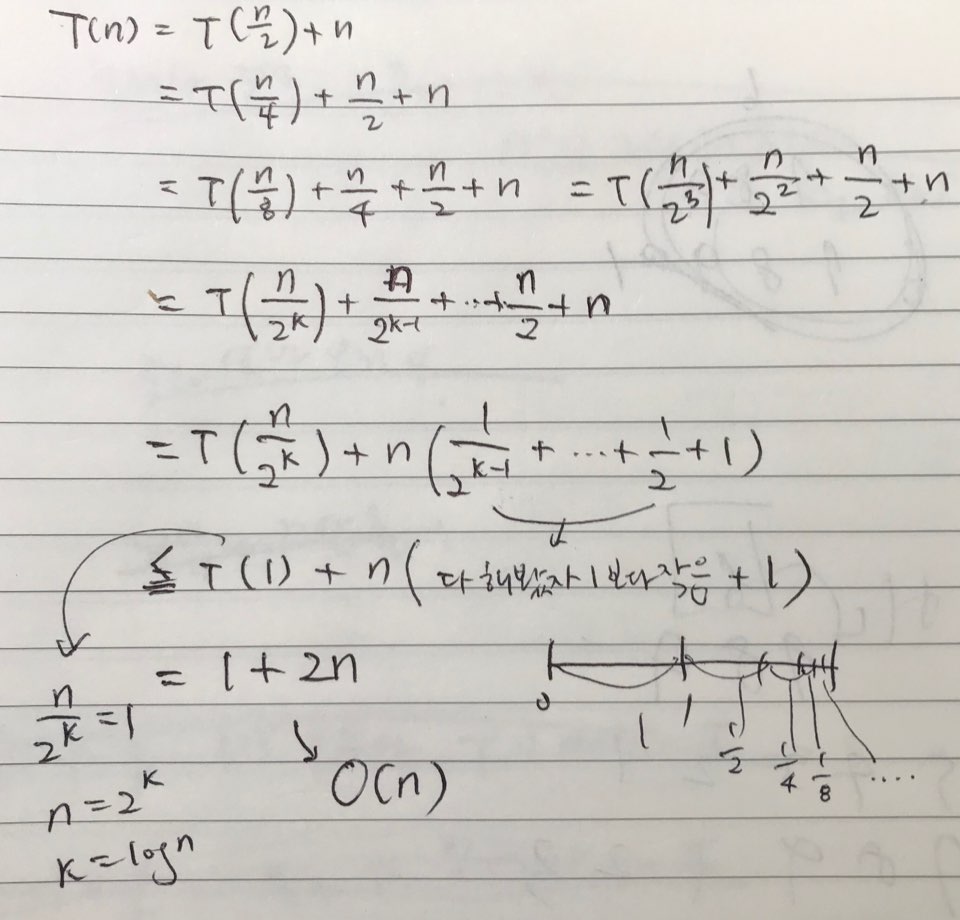 T(n) = T(n/2) + n
= T(n/4) + n/2 + n
= T(n/8) + n/4 + n/2 + n = T(n/2³) + n/2² + n/2 + n
= T(n/2^k) + n/2^(k-1) + ... + n/2 + n
= T(n/2^k) + n(1/2^(k-1) + ... + 1/2 + 1)
≦ T(1) + n(다 해봤자 1보다 작음 + 1)
= 1 + 2n
0 1 1 1/2 1/4 1/8 ....
O(n)
n/2^k = 1
n = 2^k
k = log n